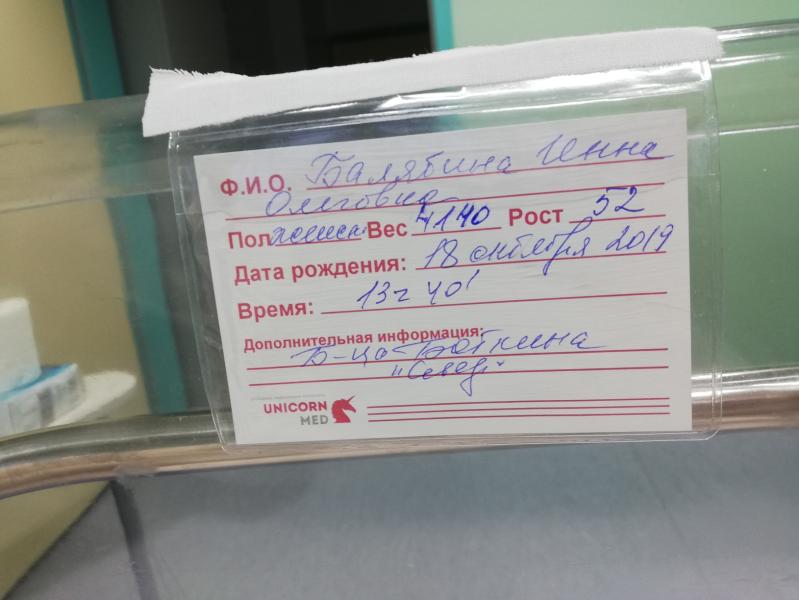 Ф.И.О. Балябина Инна
Олеговна
Пол женск. Вес 4140 Рост 52
Дата рождения: 18 октября 2019
Время: 13ч 40'
Дополнительная информация:
Б-ца Боткина
UNICORN
MED